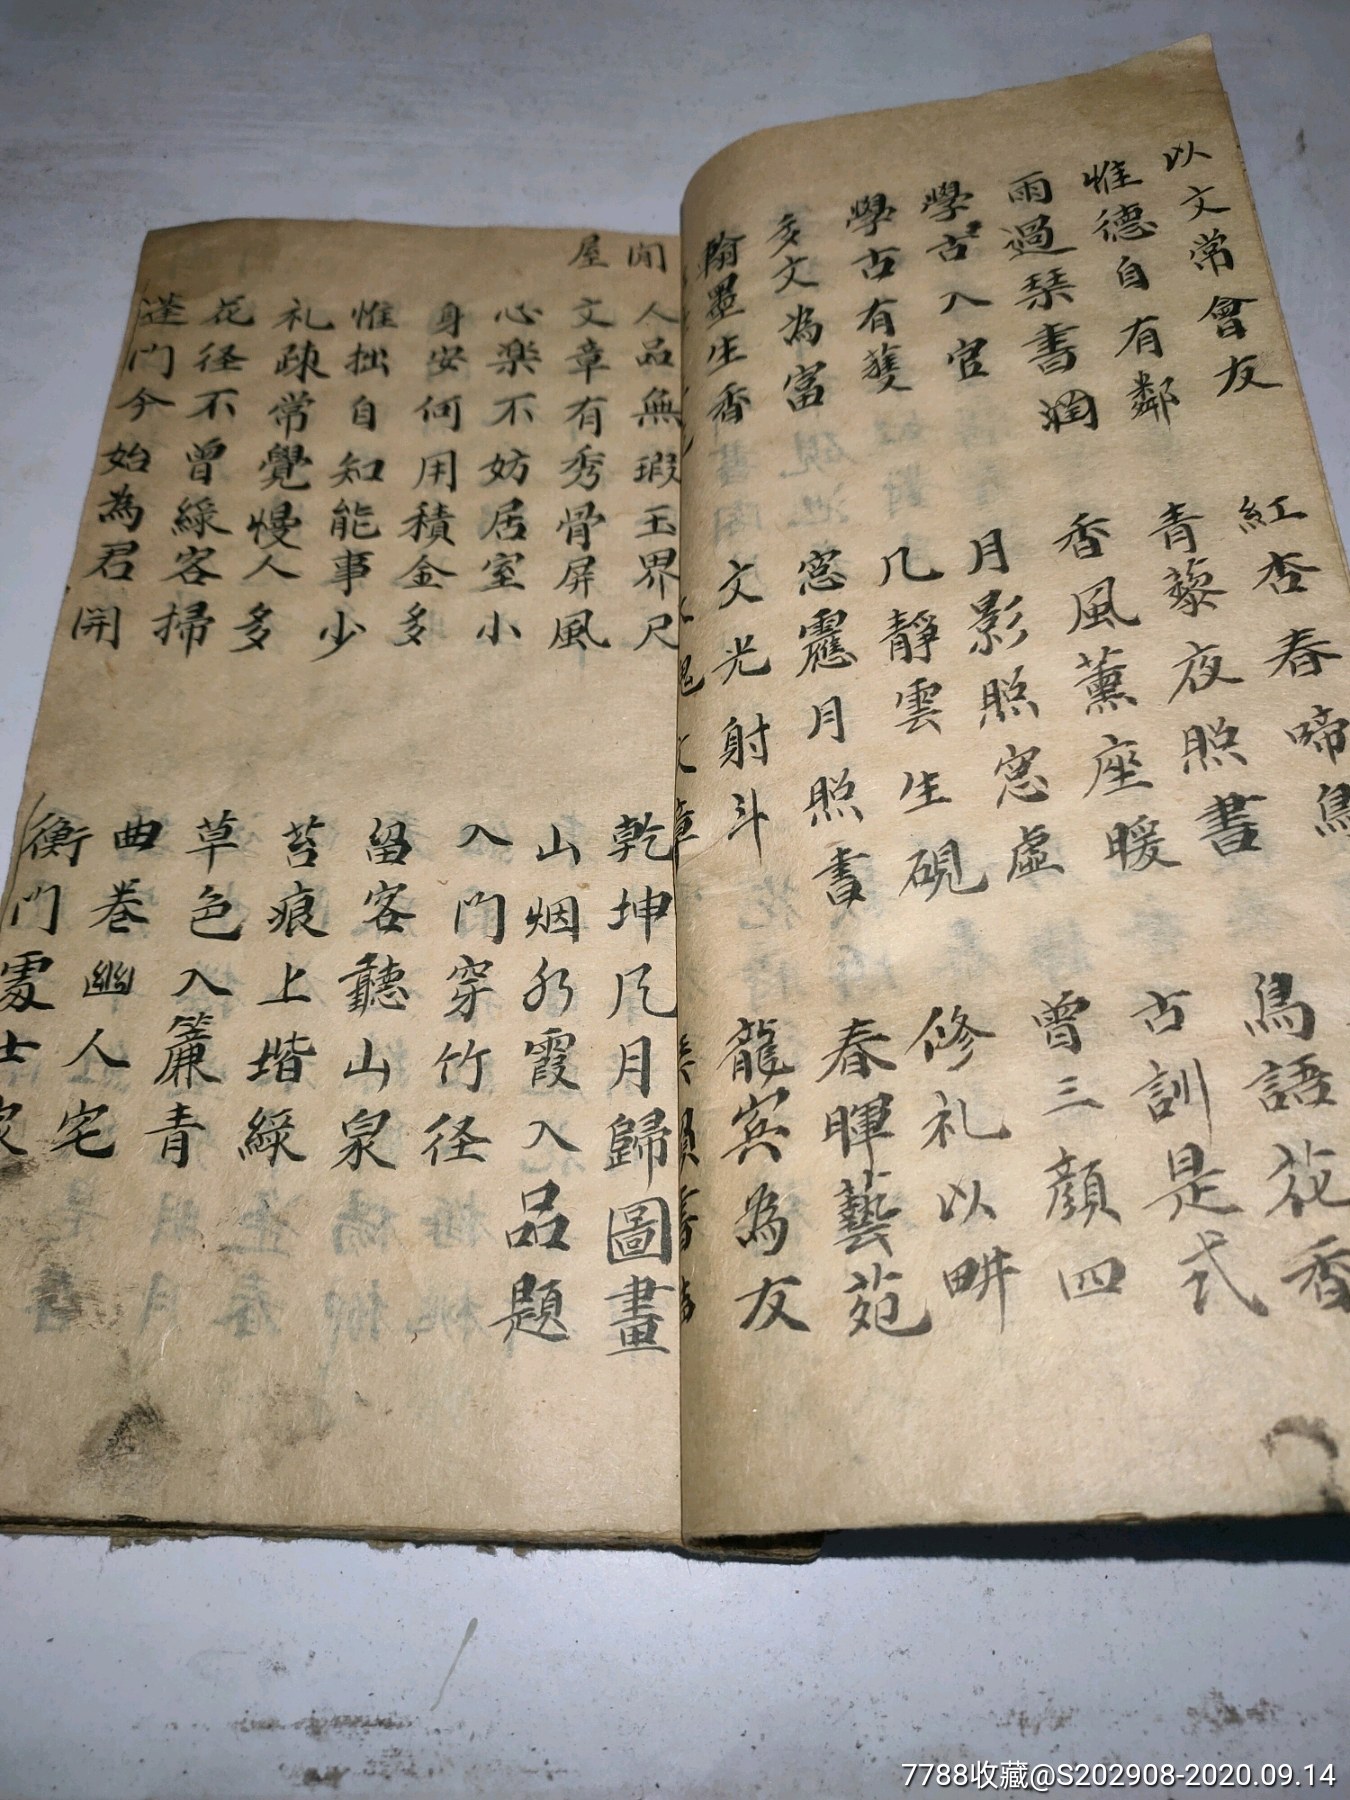 以文常會友
惟德自有鄰
雨過琴書潤
學古入官
學古有獲
多文為富
翰墨生香
紅杏春啼鳥
青藜夜照書
香風薰座暖
月影照窓虛
几靜雲生硯
窓靈月照書
文光射斗
鳥語花香
古訓是式
曾三顏四
修礼以畊
春暉藝苑
龍賓為友
閒
屋
人品無瑕玉界尺
文章有秀骨屏風
心樂不妨居室小
身安何用積金多
惟拙自知能事少
礼疎常覺慢人多
花径不曾緣客掃
蓬門今始為君開
乾坤风月歸圖畫
山烟水霞入品題
入門穿竹径
留客聽山泉
苔痕上堦綠
草色入簾青
曲巷幽人宅
衡門處士家
7788收藏@S202908-2020.09.14